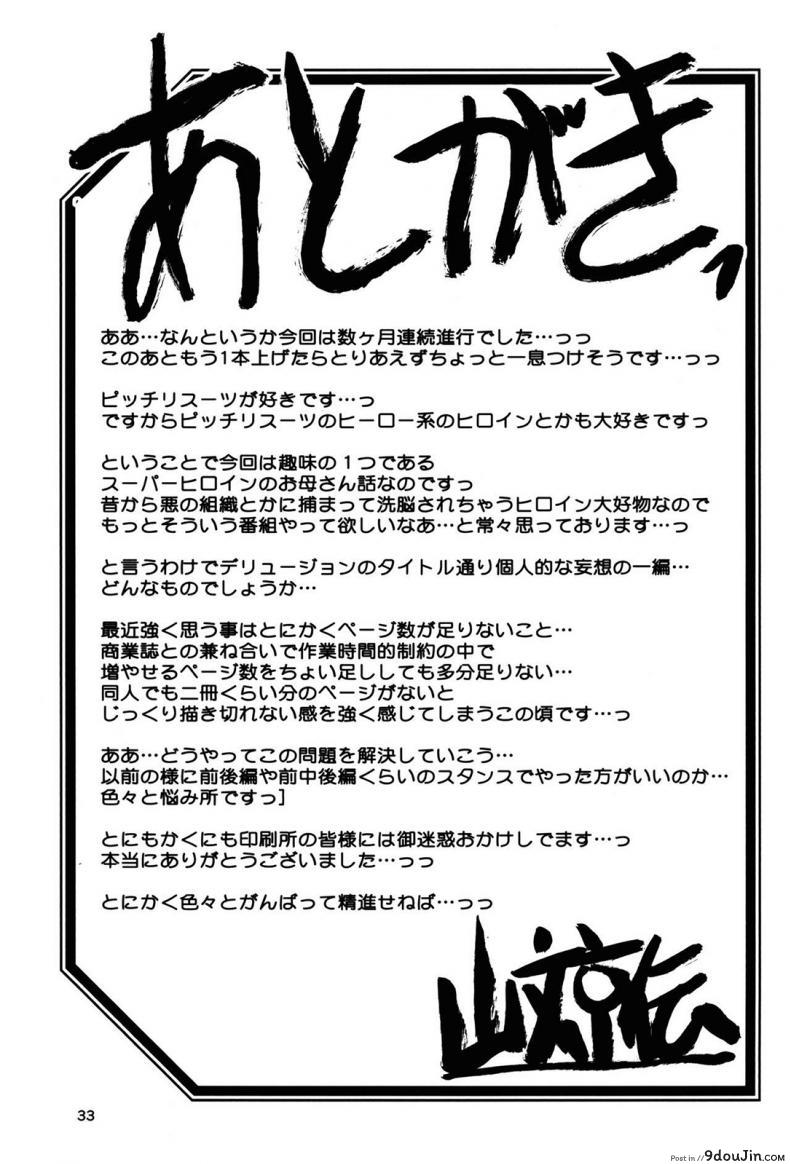 あとがきっ
ああ…なんというか今回は数ヶ月連続進行でした…っっ
このあともう1本上げたらとりあえずちょっと一息つけそうです…っっ
ピッチリスーツが好きです…っ
ですからピッチリスーツのヒーロー系のヒロインとかも大好きですっ
ということで今回は趣味の1つである
スーパーヒロインのお母さん話なのですっ
昔から悪の組織とかに捕まって洗脳されちゃうヒロイン大好物なので
もっとそういう番組やって欲しいなあ…と常々思っております…っ
と言うわけでデリュージョンのタイトル通り個人的な妄想の一編…
どんなものでしょうか…
最近強く思う事はとにかくページ数が足りないこと…
商業誌との兼ね合いで作業時間的制約の中で
増やせるページ数をちょい足ししても多分足りない…
同人でも二冊くらい分のページがないと
じっくり描き切れない感を強く感じてしまうこの頃です…っ
ああ…どうやってこの問題を解決していこう…
以前の様に前後編や前中後編くらいのスタンスでやった方がいいのか…
色々と悩み所ですっ]
とにもかくにも印刷所の皆様には御迷惑おかけしでます…っ
本当にありがとうございました…っっ
とにかく色々とがんばって精進せねば…っっ
山文京伝
33
Post in // 9douJin.com